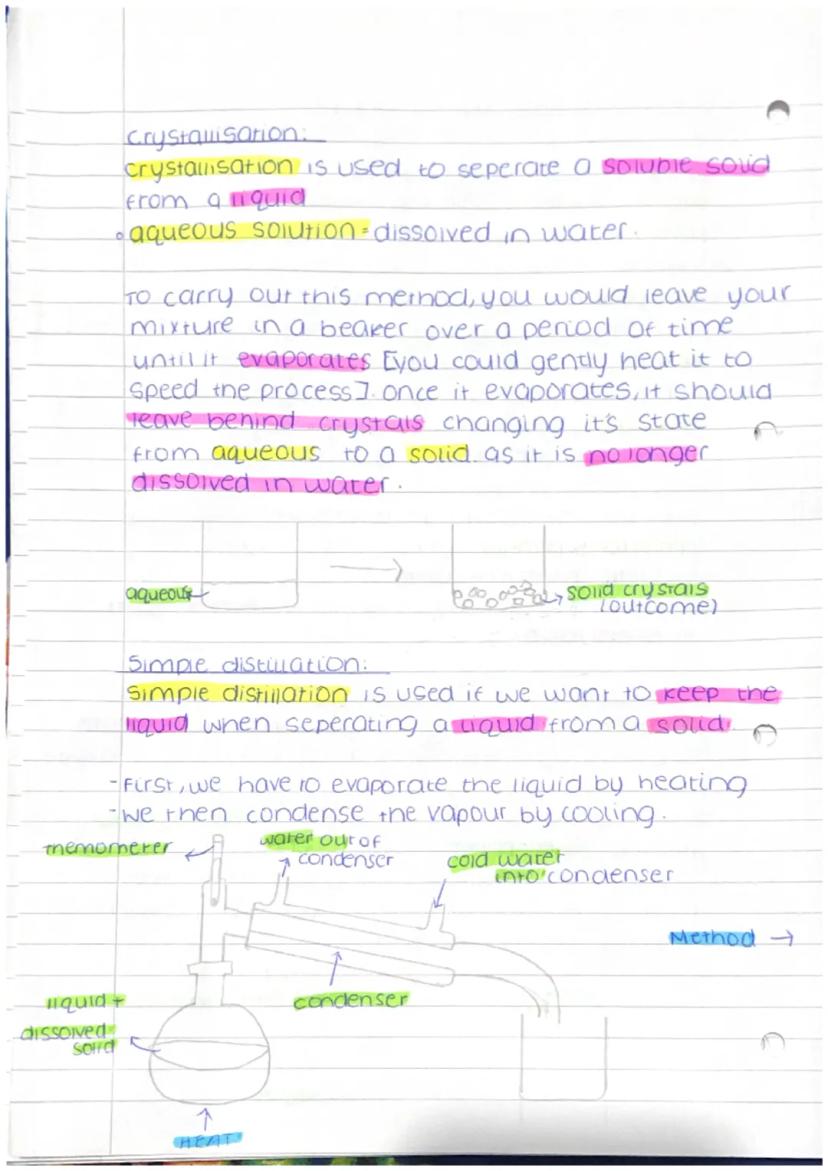 Crystallisation:
crystallisation is used to seperate a soluble solid
from a liquid
• aqueous solution = dissolved in water.
To carry out this method, you would leave your
mixture in a beaker over a period of time
until it evaporates [you could gently heat it to
speed the process]. once it evaporates, it should
leave behind crystals changing it's state
from aqueous to a solid as it is no longer
dissolved in water.
aqueous
solid crystals
(outcome)
Simple distillation:
simple distillation is used if we want to keep the
liquid when seperating a liquid from a solid.
-First, we have to evaporate the liquid by heating
-we then condense the vapour by cooling.
themometer
water out of
condenser
cold water
into condenser
Method →
condenser
liquid +
dissolved
solid
HEAT